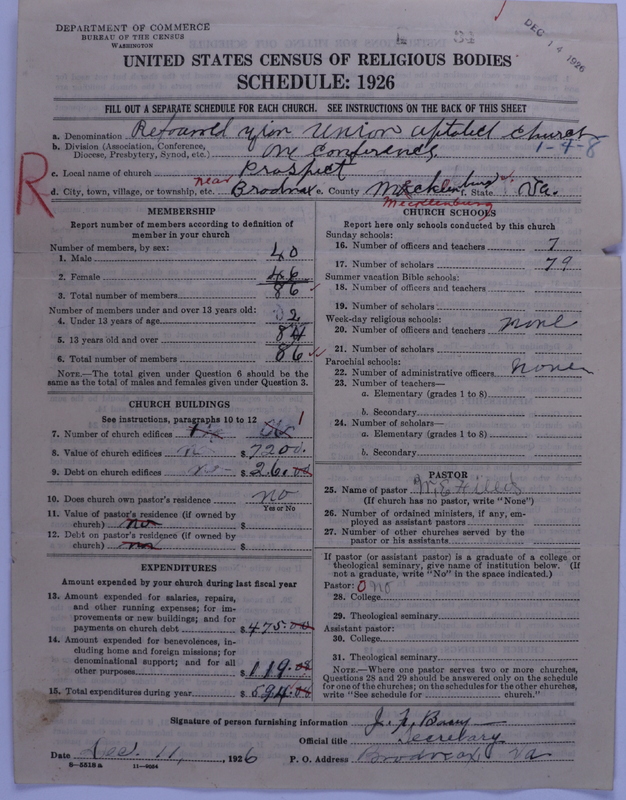 DEPARTMENT OF COMMERCE
BUREAU OF THE CENSUS
WASHINGTON
DEC 14 1926
UNITED STATES CENSUS OF RELIGIOUS BODIES
SCHEDULE: 1926
FILL OUT A SEPARATE SCHEDULE FOR EACH CHURCH. SEE INSTRUCTIONS ON THE BACK OF THIS SHEET
a. Denomination Reformed Zion Union church
1-4-8
b. Division (Association, Conference,
Diocese, Presbytery, Synod, etc.) conference
c. Local name of church Prospect
R
near
d. City, town, village, or township, etc. Brodnax e. County Mecklenburg f. State Va.
Mecklenburg
MEMBERSHIP
Report number of members according to definition of
member in your church
Number of members, by sex:
1. Male 40
2. Female 46
3. Total number of members 86
Number of members under and over 13 years old:
4. Under 13 years of age 2
5. 13 years old and over 84
6. Total number of members 86
NOTE.—The total given under Question 6 should be
same as the total of males and females given under Question 3.
CHURCH BUILDINGS
See instructions, paragraphs 10 to 12
7. Number of church edifices 1
8. Value of church edifices $ 7200.
9. Debt on church edifices no $ 26.00
10. Does church own pastor's residence no
Yes or No
11. Value of pastor's residence (if owned by
church) no $
12. Debt on pastor's residence (if owned by
church) no $
EXPENDITURES
Amount expended by your church during last fiscal year
13. Amount expended for salaries, repairs,
and other running expenses; for im-
provements or new buildings; and for
payments on church debt $ 475.00
14. Amount expended for benevolences, in-
cluding home and foreign missions; for
denominational support; and for all
other purposes $ 119.00
15. Total expenditures during year $ 594.00
CHURCH SCHOOLS
Report here only schools conducted by this church
Sunday schools:
16. Number of officers and teachers 7
17. Number of scholars 79
Summer vacation Bible schools:
18. Number of officers and teachers
19. Number of scholars
Week-day religious schools:
20. Number of officers and teachers none
21. Number of scholars
Parochial schools:
22. Number of administrative officers none
23. Number of teachers—
a. Elementary (grades 1 to 8)
b. Secondary
24. Number of scholars—
a. Elementary (grades 1 to 8)
b. Secondary
PASTOR
25. Name of pastor W. E.
(If church has no pastor, write "None")
26. Number of ordained ministers, if any, em-
ployed as assistant pastors
27. Number of other churches served by the
pastor or his assistants
If pastor (or assistant pastor) is a graduate of a college or
theological seminary, give name of institution below. (If
not a graduate, write "No" in the space indicated.)
Pastor: O no
28. College
29. Theological seminary
Assistant pastor:
30. College
31. Theological seminary
NOTE.—Where one pastor serves two or more churches,
Questions 28 and 29 should be answered only on the schedule
for one of the churches; on the schedules for the other churches,
write "See schedule for church."
Signature of person furnishing information J.
Official title Secretary
Date Dec. 11, 1926 P. O. Address Brodnax, Va
8-5518a 11-9624